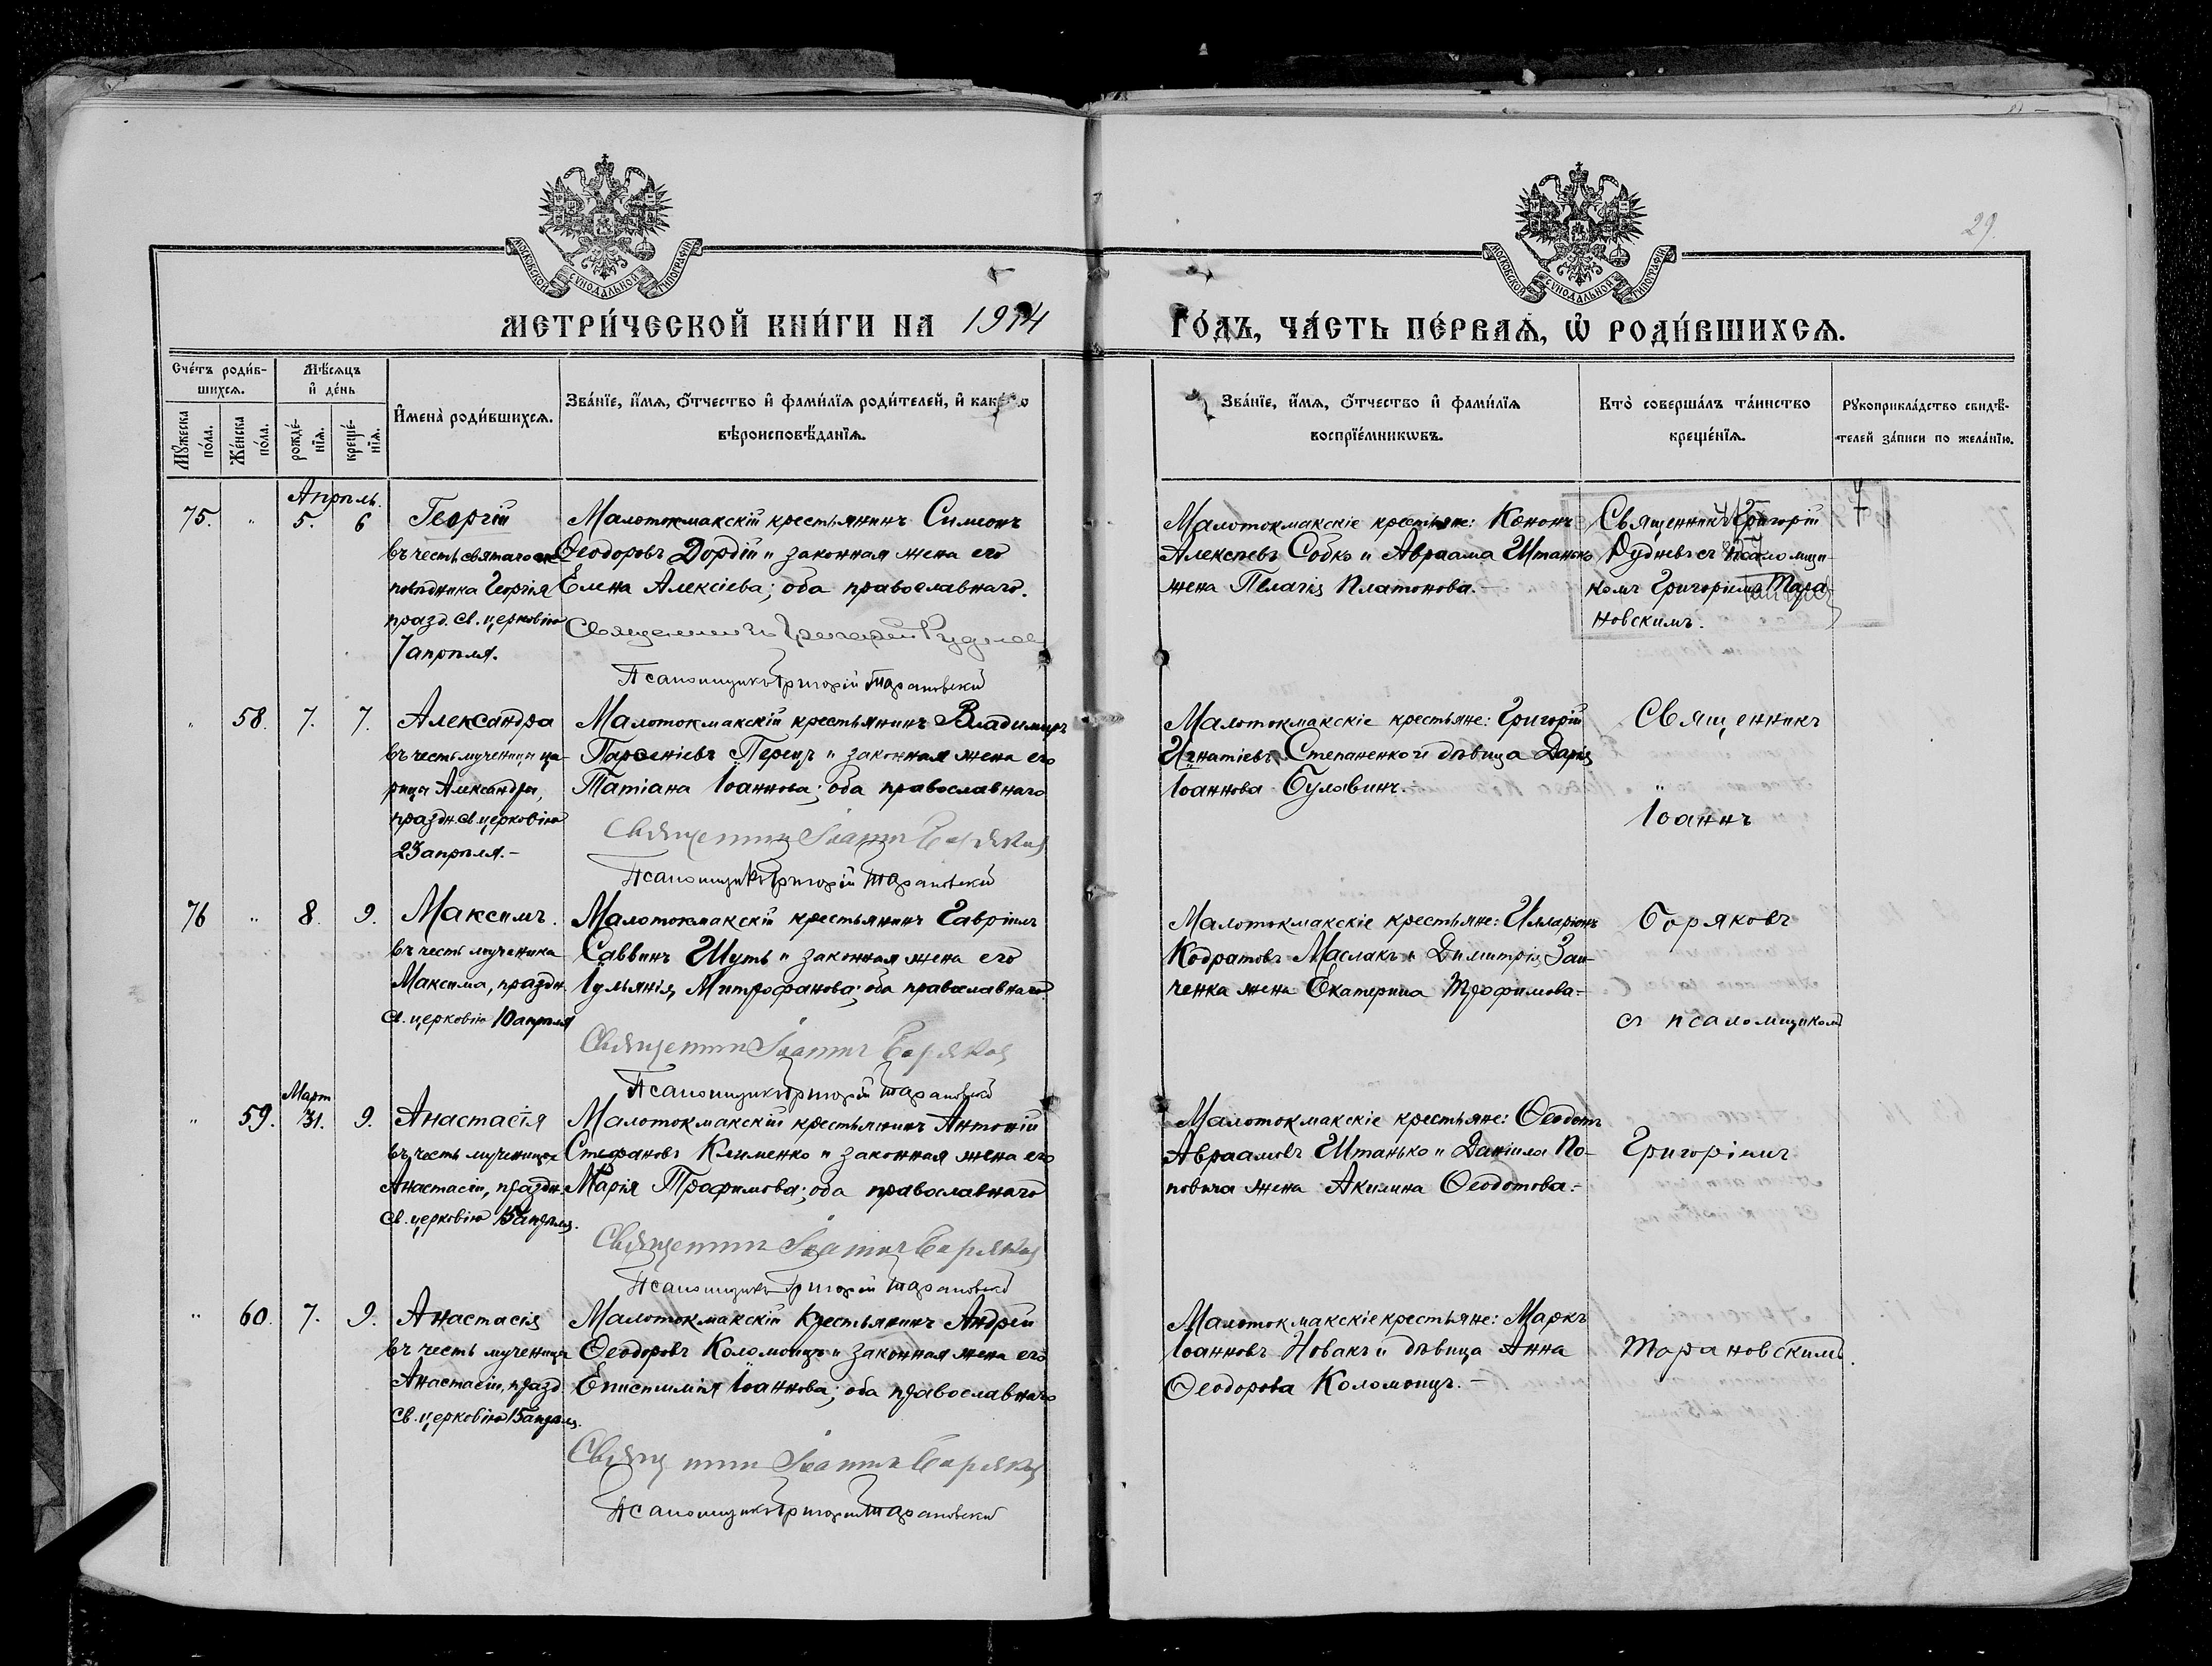 29.
МОСКОВСКОЙ СУНОДАЛЬНОЙ ТИПОГРАФІИ
МОСКОВСКОЙ СУНОДАЛЬНОЙ ТИПОГРАФІИ
МЕТРИ́ЧЕСКОЙ КНИ́ГИ НА 1914 ГО́ДЪ, ЧА́СТЬ ПЕ́РВАѦ, Ѡ҆ РОДИ́ВШИХСѦ.
Сче́тъ роди́в-
шихсѧ.
Мꙋ́жеска
по́ла.
Же́нска
по́ла.
Мѣ́сѧцъ
и҆ де́нь
рожде́-
нїѧ.
креще́-
нїѧ.
И҆мена̀ роди́вшихсѧ.
Зва́нїе, и҆́мѧ, ѻ҆́тчество и҆ фами́лїѧ роди́телей, и҆ како́гѡ
вѣроисповѣ́данїѧ.
Зва́нїе, и҆́мѧ, ѻ҆́тчество и҆ фами́лїѧ
воспрїе́мникѡвъ.
Кто̀ соверша́лъ та́инство
креще́нїѧ.
Рꙋкоприкла́дство свидѣ́-
телей за́писи по жела́нїю.
Апрѣль.
75. " 5. 6
Георгій
въ честь святаго
побѣдника Георгія
празд. св. церковію
7 апрѣля.
Малотокмакскій крестьянинъ Симеонъ
Ѳеодоровъ Дордій и законная жена его
Елена Алексіева; оба православнаго.
Священникъ Григорій Рудневъ
Псаломщикъ Григорій Тарановскій
Малотокмакскіе крестьяне: Кононъ
Алексѣевъ Собко и Авраама Штанько
жена Пелагія Платонова.-
Священникъ Григорій
Рудневъ съ псаломщи-
комъ Григоріемъ Тара-
новскимъ.
" 58. 7. 7.
Александра
въ честь мученицы ца-
рицы Александры,
праздн. св. церковію
23 апрѣля.-
Малотокмакскій крестьянинъ Владимиръ
Парѳеніевъ Перецъ и законная жена его
Татіана Іоаннова; оба православнаго
Священникъ Іоаннъ Боряковъ
Псаломщикъ Григорій Тарановскій
Малотокмакскіе крестьяне: Григорій
Игнатіевъ Степаненко и дѣвица Дарія
Іоаннова Булавинъ.-
Священникъ
"
Іоаннъ
76 " 8. 9.
Максимъ.
въ честь мученика
Максима, праздн.
св. церковію 10 апрѣля
Малотокмакскій крестьянинъ Гавріилъ
Саввинъ Шуть и законная жена его
Іульянія Митрофанова; оба православнаго.
Священникъ Іоаннъ Боряковъ
Псаломщикъ Григорій Тарановскій
Малотокмакскіе крестьяне: Илларіонъ
Кодратовъ Маслакъ и Димитрія Заи-
ченка жена Екатерина Трофимова-
Боряковъ
съ псаломщикомъ
Март
" 59. 31. 9.
Анастасія
въ честь мученицы
Анастасіи, праздн.
св. церковію 15 апрѣля.
Малотокмакскій крестьянинъ Антоній
Стефановъ Клименко и законная жена его
Марія Трофимова; оба православнаго
Священникъ Іоаннъ Боряковъ
Псаломщикъ Григорій Тарановскій
Малотокмакскіе крестьяне: Ѳеодотъ
Авраамовъ Штанько и Даніила По-
повича жена Акилина Ѳеодотова.-
Григоріемъ
" 60. 7. 9.
Анастасія
въ честь мученицы
Анастасіи, празд.
св. церковію 15 апрѣля.
Малотокмакскій крестьянинъ Андрей
Ѳеодоровъ Коломоецъ и законная жена его
Епистимія Іоаннова; оба православнаго
Священникъ Іоаннъ Боряковъ
Псаломщикъ Григорій Тарановскій
Малотокмакскіе крестьяне: Маркъ
Іоанновъ Новакъ и дѣвица Анна
Ѳеодорова Коломоецъ.-
Тарановскимъ.